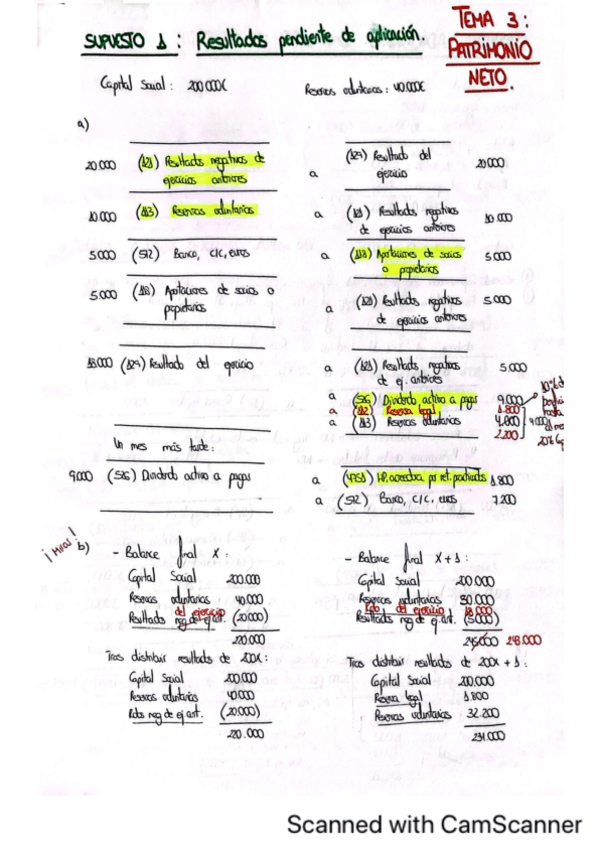 TEMA 3:
PATRIMONIO
NETO.
SUPUESTO 1: Resultados pendiente de aplicación.
Capital Social: 200.000€ Reservas voluntarias: 40.000€
a)
20.000 (121) Resultados negativos de ejercicios anteriores a (129) Resultado del ejercicio 20.000
10.000 (113) Reservas voluntarias a (121) Resultados negativos de ejercicios anteriores 10.000
5.000 (572) Banco, c/c, euros a (118) Aportaciones de socios o propietarios 5.000
5.000 (118) Aportaciones de socios o propietarios a (121) Resultados negativos de ejercicios anteriores 5.000
18.000 (129) Resultado del ejercicio a (121) Resultados negativos de ej. anteriores 5.000
a (526) Dividendo activo a pagar 9.000
a (112) Reserva legal 1.800
a (113) Reservas voluntarias 4.000
2.200
10% d
20%
Un mes más tarde:
9.000 (526) Dividendo activo a pagar a (4751) HP, acreedora por ret. practicadas 1.800
a (572) Banco, c/c, euros 7.200
¡Mirar!
b)
- Balance final X:
Capital Social 200.000
Reservas voluntarias 40.000
del ejercicio
Resultados neg. de ej. ant. (20.000)
220.000
Tras distribuir resultados de 200X:
Capital Social 200.000
Reservas voluntarias 40.000
Rdos neg de ej. ant. (20.000)
220.000
- Balance final X+1:
Capital Social 200.000
Reservas voluntarias 30.000
Rdo del ejercicio 18.000
Resultados neg de ej. ant (5.000)
245.000 248.000
Tras distribuir resultados de 200X+1:
Capital Social 200.000
Reserva legal 1.800
Reservas voluntarias 32.200
234.000
Scanned with CamScanner